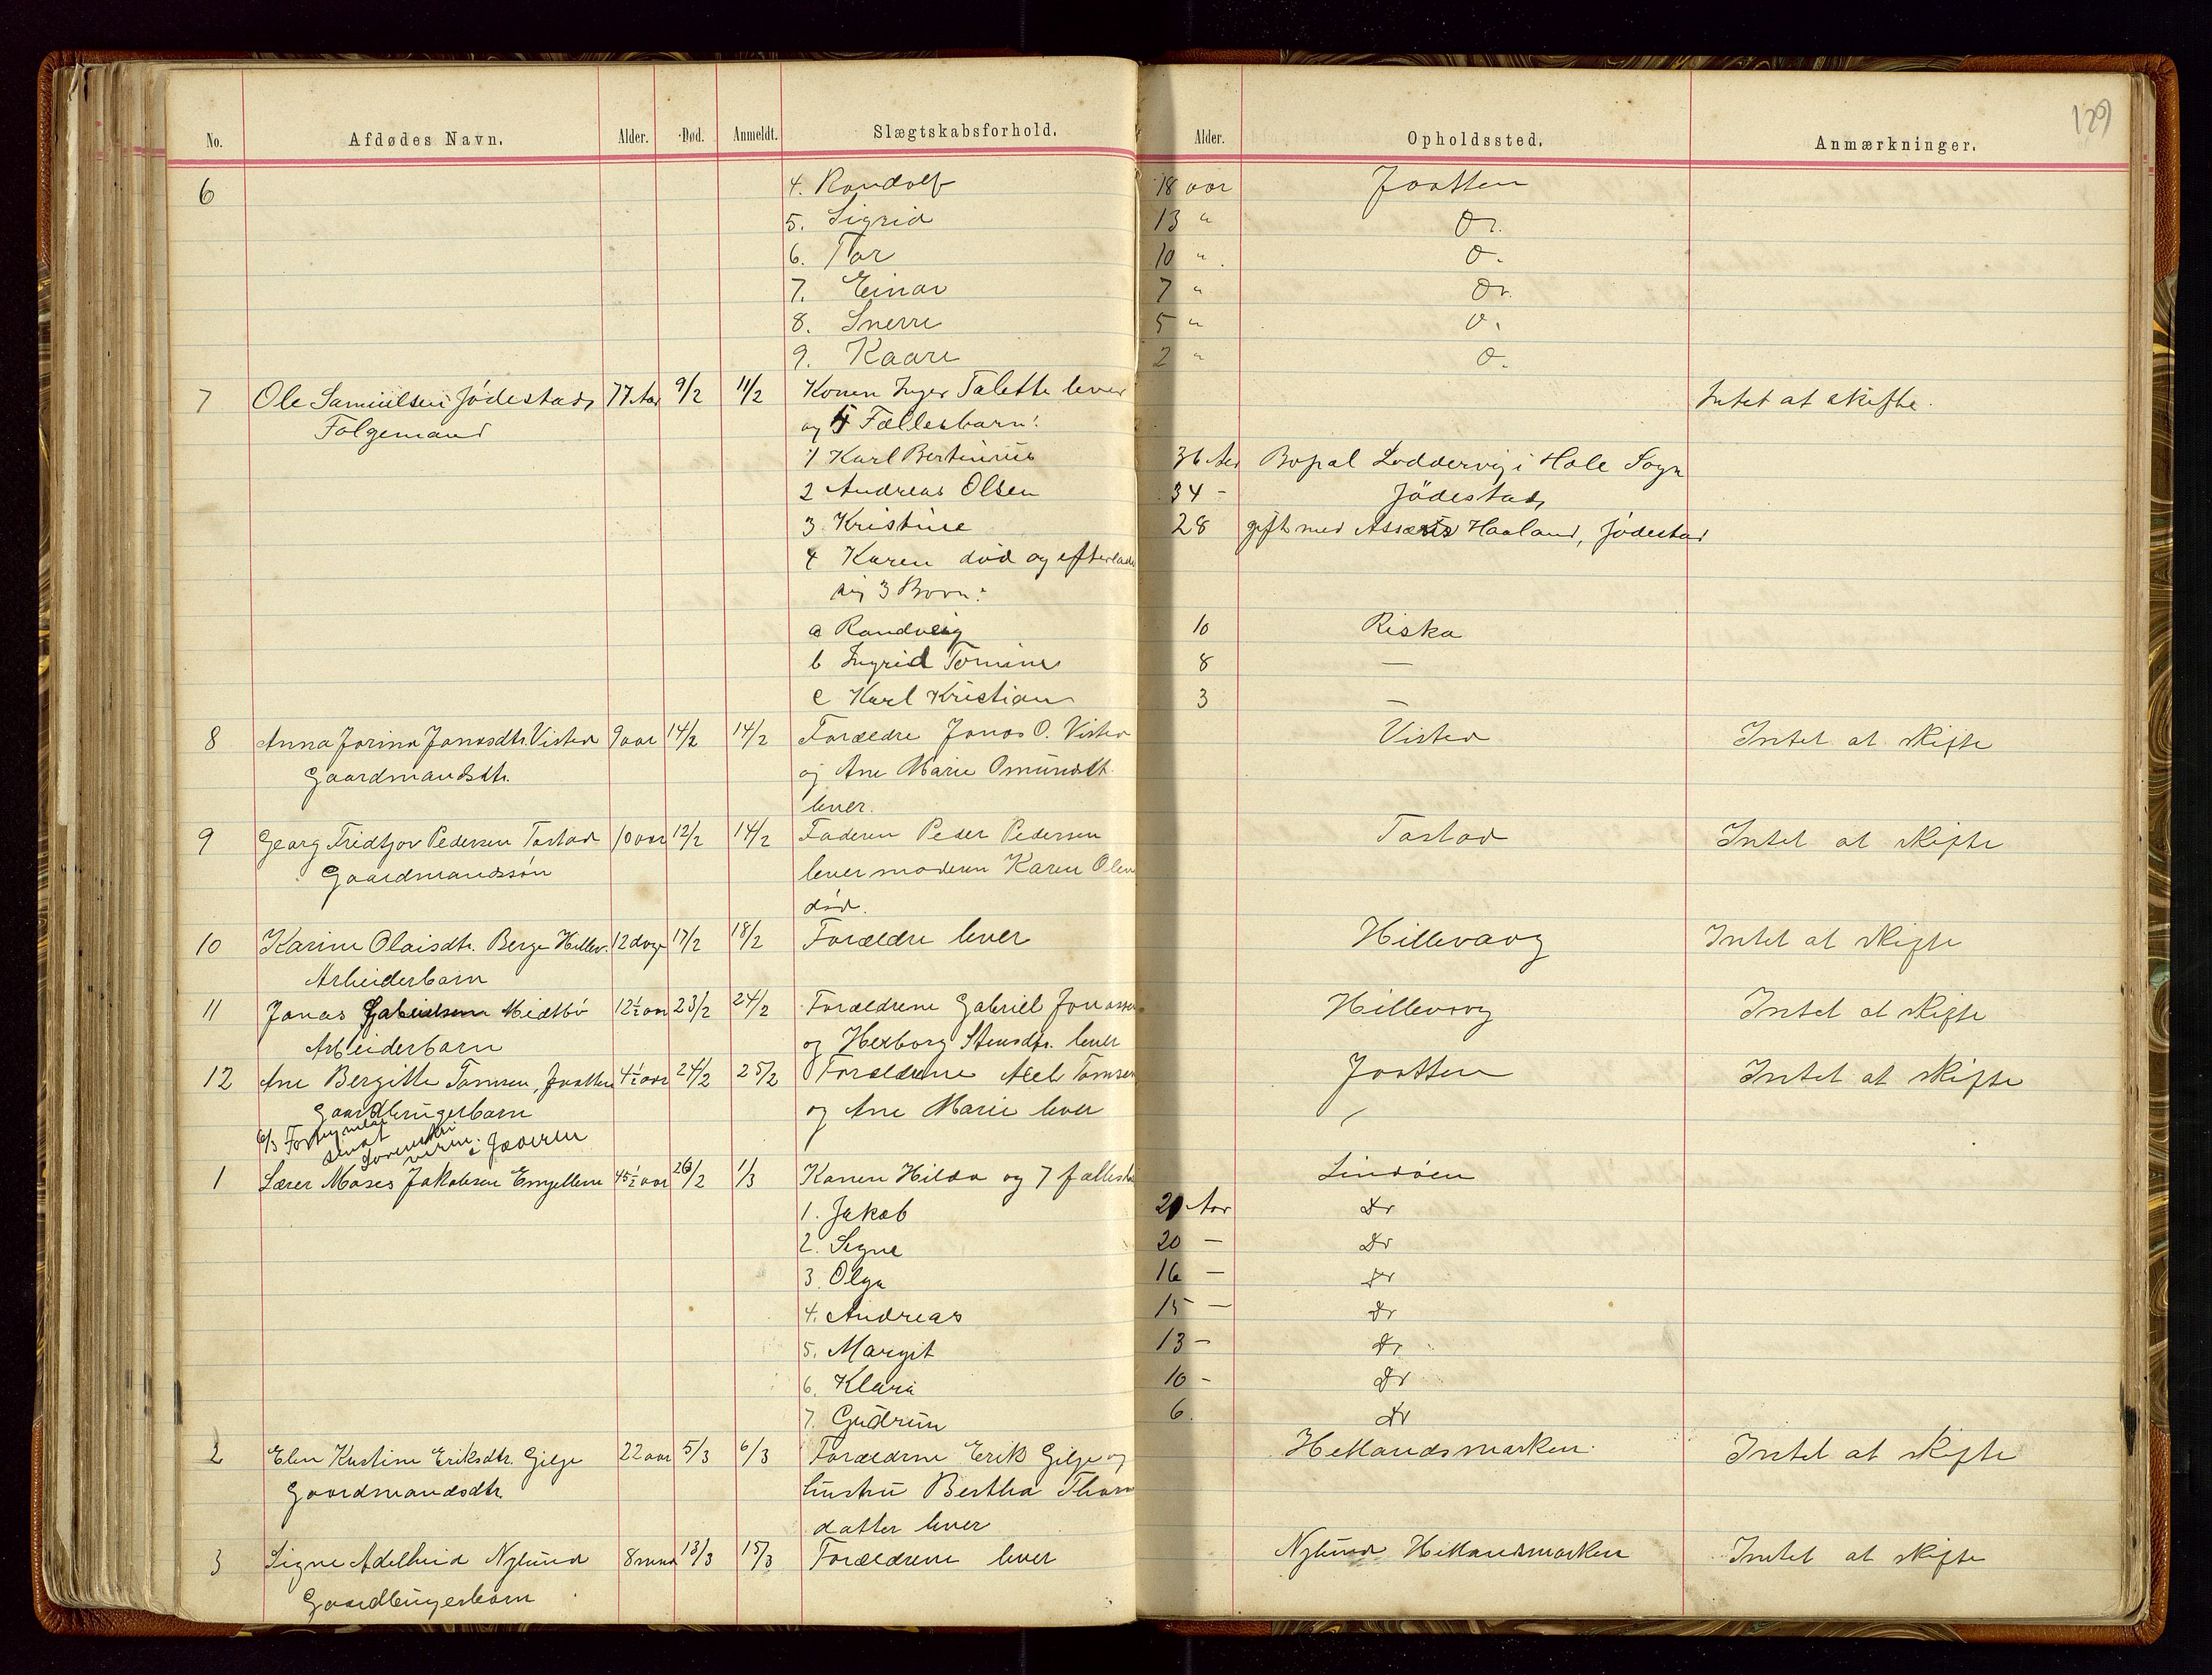 129
No. Afdødes Navn. Alder. Død. Anmeldt. Slægtskabsforhold. Alder. Opholdssted. Anmærkninger.
6 4. Randolf 18 aar Jaatten
5. Sigrid 13 " Do.
6. Tor 10 " Do.
7. Einar 7 " Do.
8. Sverre 5 " Do.
9. Kaare 2 " Do.
7 Ole Samuelsen Jödestad, 77 Aar 9/2 11/2 Konen Inger Talette lever Intet at skifte.
Følgemand og 4 Fællesbarn:
1 Karl Bertinius 36 Aar Bopæl Loddervig i Hole Sogn
2 Andreas Olsen 34 - Jödestad,
3. Kristine 28 gift med Haaland, Jödestad
4 Karen död og efterlader
sig 3 Born:
a Randveig 10 Riska
b Ingrid Tomine 8 —
c Karl Kristian 3 —
8 Anna Jorina Jonasdtr. Visted 9 aar 14/2 14/2 Forældre Jonas O. Visted Visted Intet at skifte
Gaardmandsdtr. og Ane Marie Omundsdt.
lever.
9 Georg Fridtjov Pedersen Tastad 10 aar 12/2 14/2 Faderen Peder Pedersen Tastad Intet at skifte
Gaardmandssön lever moderen Karen Olen
död.
10 Karine Olaisdtr. Berge Hillev. 12 dage 17/2 18/2 Forældre lever Hillevaag Intet at skifte
Arbeiderbarn
11 Jonas Gabrielsen Midtbö 12½ aar 23/2 24/2 Forældrene Gabriel Jonassen Hillevaag Intet at skifte
Arbeiderbarn og Herborg Stensdtr. lever
12 Ane Bergitte Tomsen, Jaatten 4½ aar 24/2 25/2 Forældrene Tomsen Jaatten Intet at skifte
Gaardbrugerbarn og Ane Marie lever
6/3
1 Lærer Moses Jakobsen 45½ aar 26/2 1/3 Konen Hilda og 7 fællesb. Lindöen
1. Jakob 21 Aar Do
2. Signe 20 — Do
3. Olga 16 — Do
4. Andreas 15 — Do
5. Margit 13 - Do
6. Klara 10 - Do
7. Gudrun 6. Do
2 Elen Kristine Eriksdtr. Gilje 22 aar 5/3 6/3 Forældrene Erik Gilje og Hetlandsmarken. Intet at skifte
Gaardmandsdtr. hustru Bertha Thom
datter lever
3 Signe Adelheid Nylund 8 mnd 13/3 15/3 Forældrene lever Nylund Hetlandsmarken Intet at skifte
Gaardbrugerbarn